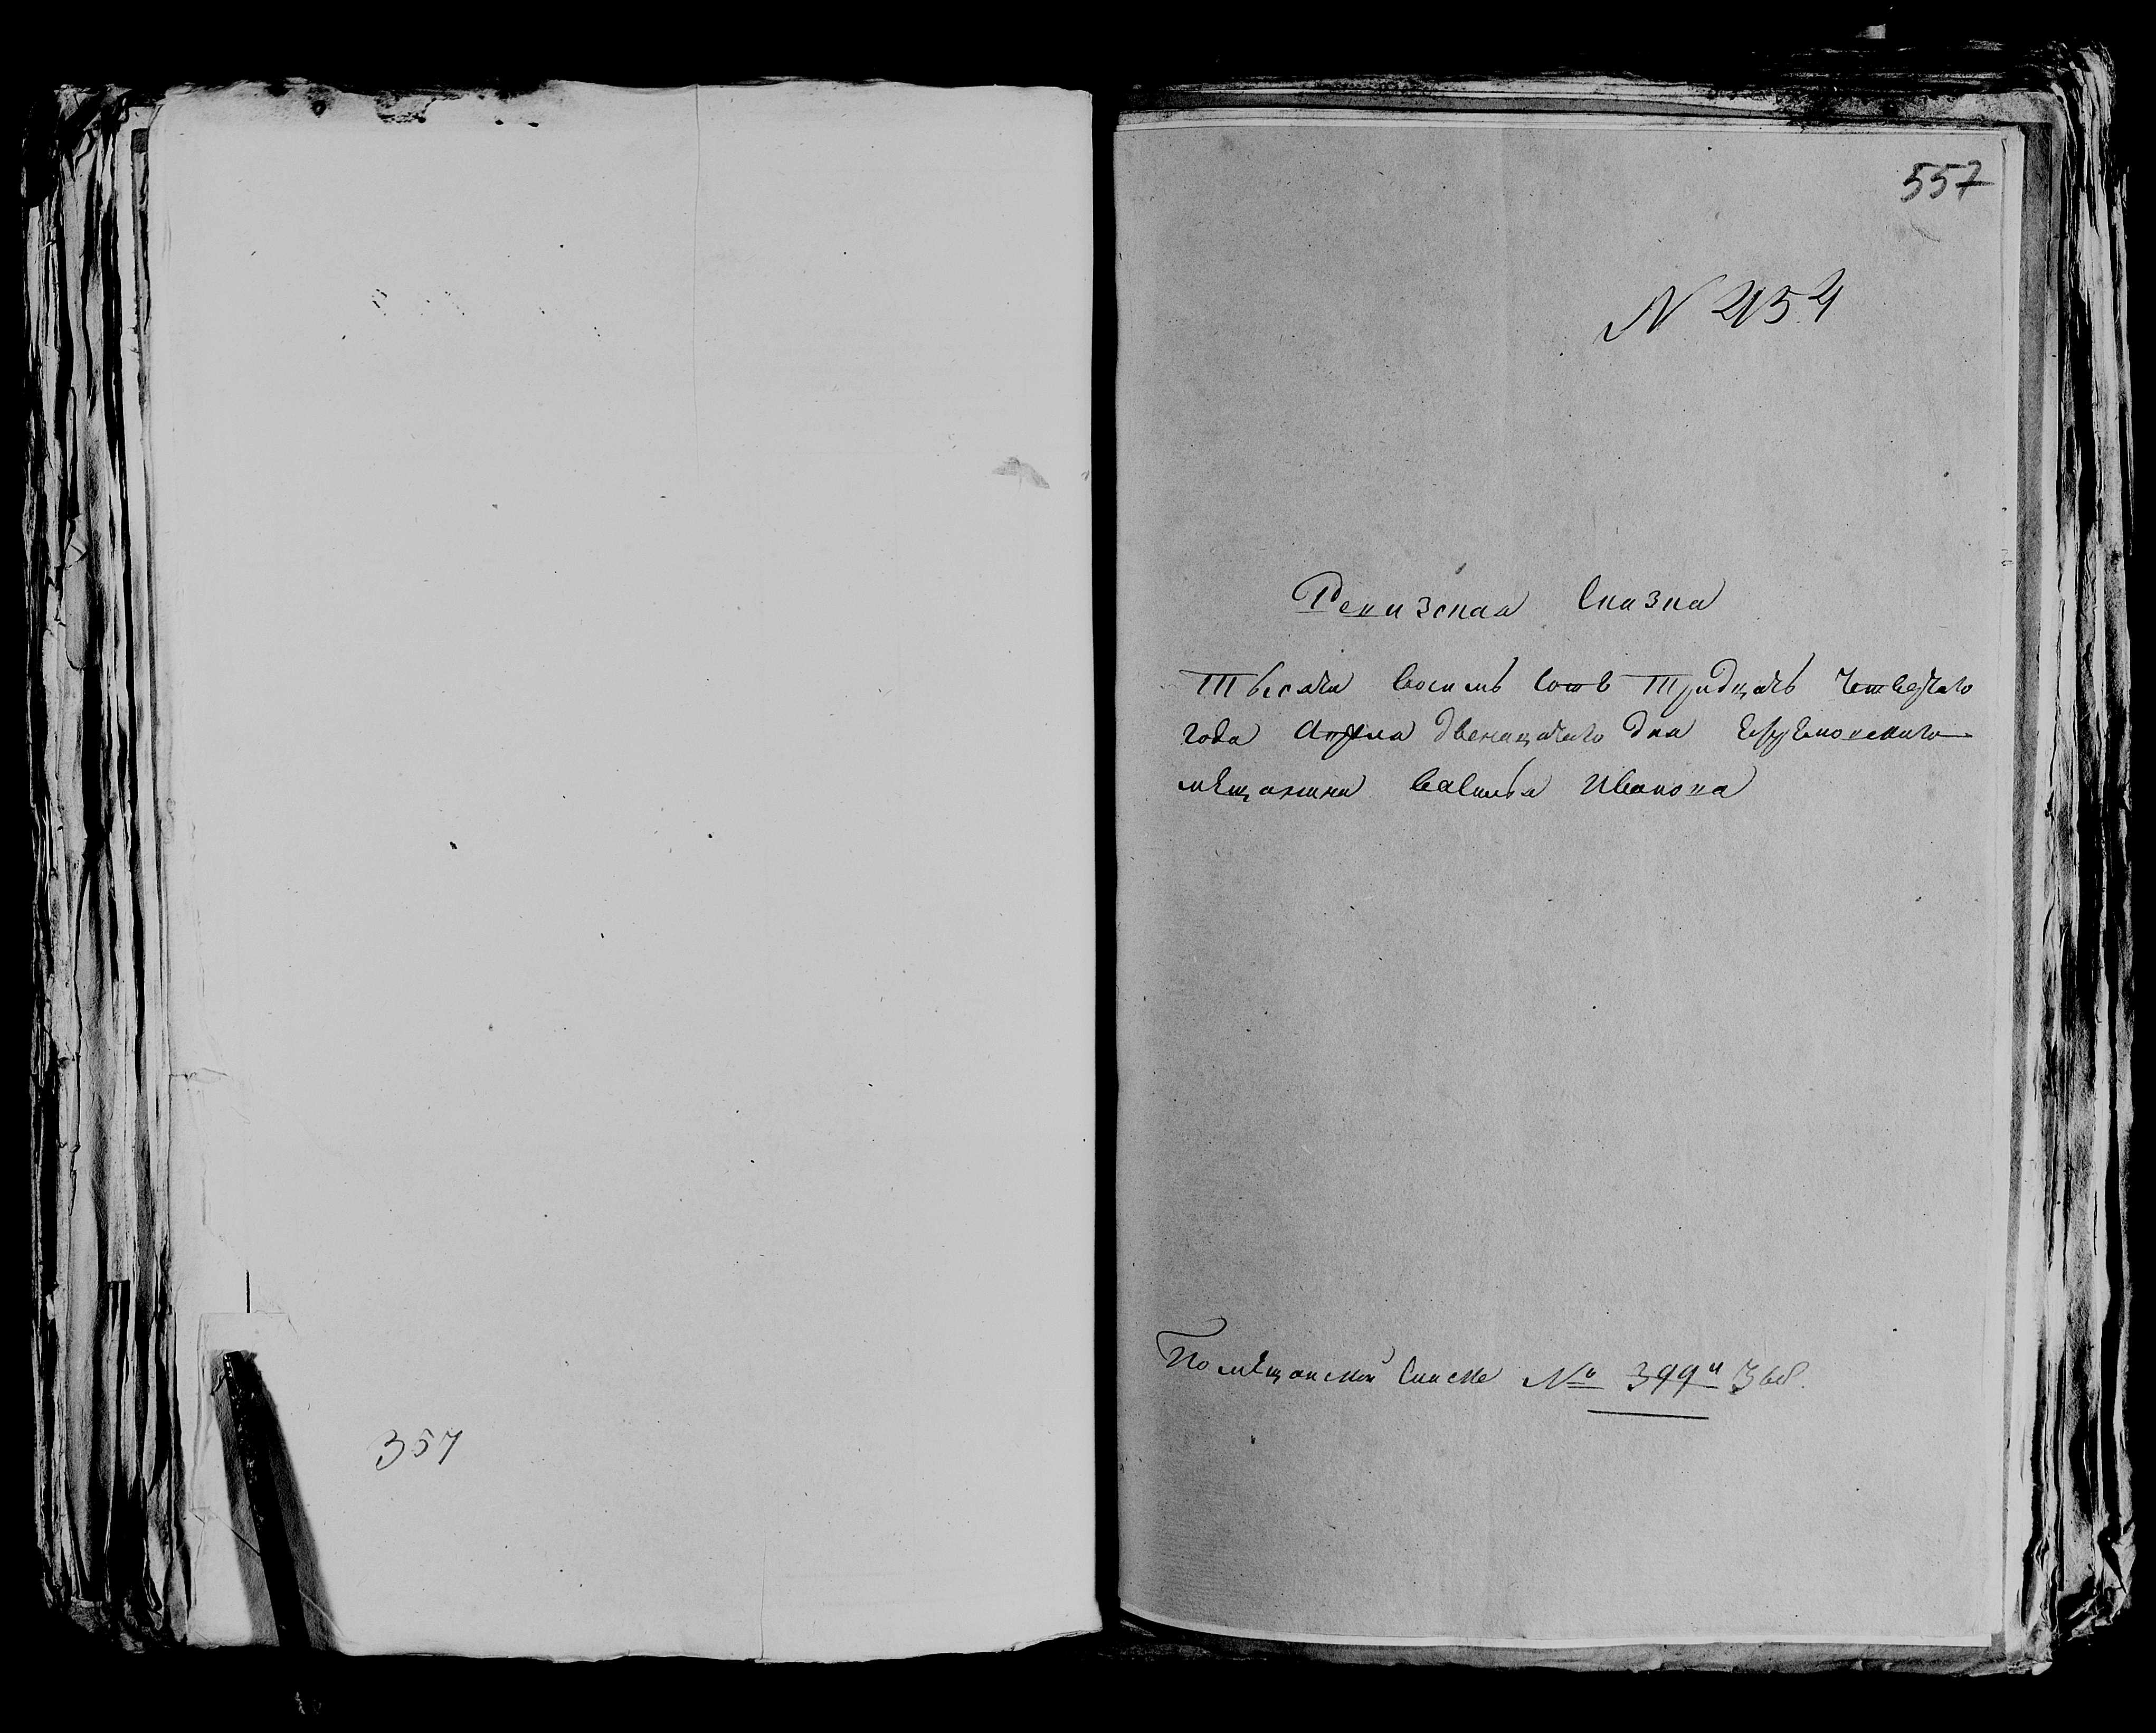 357
557
N 454
Ревизская Сказка
Тысяча восемь сотъ Тридцать Четвертаго
года Апреля двенацатаго дня
мѣщанина Савилья Иванова
По мѣщанской Списке № 399 и 368.